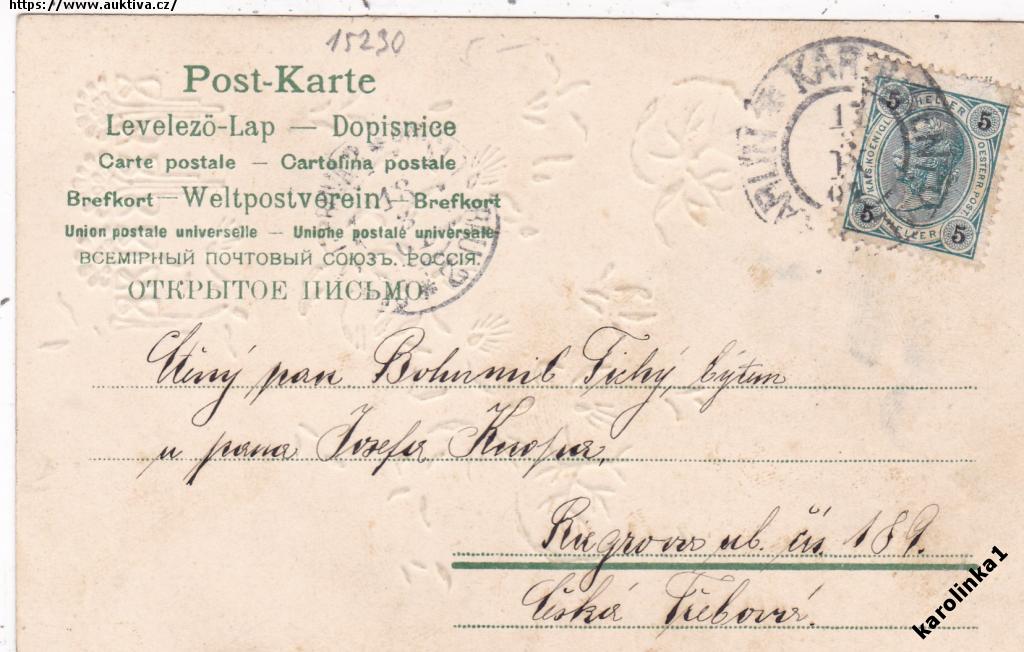 https://www.auktiva.cz/
15230
Post-Karte
Levelezö-Lap — Dopisnice
Carte postale — Cartolina postale
Brefkort — Weltpostverein — Brefkort
Union postale universelle — Unione postale universale
ВСЕМІРНЫЙ ПОЧТОВЫЙ СОЮЗЪ. РОССІЯ.
ОТКРЫТОЕ ПИСЬМО
5 HELLER 5
KAIS. KOENIGL. OESTERR. POST
5 HELLER 5
Ctěný pan Bohumil Tichý, bytem
u pana Josefa Knopa,
Riegrova ul. čís. 189.
Česká Třebová.
karolinka1